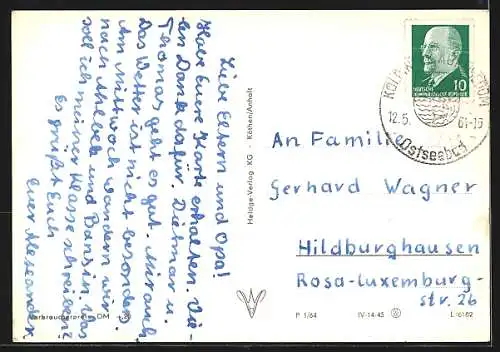 Liebe Eltern und Opa!
Habe Eure Karte erhalten. Vie-
len Dank dafür. Dietmar u.
Thomas geht es gut. Mir auch.
Das Wetter ist nicht besonders.
Am Mittwoch wandern wir
nach Ahlbeck und Bansin. Was
soll ich meiner Klasse schreiben?
Es grüßt Euch
Euer Alexander.
Verbraucherpreis DM
Heldge-Verlag KG · Köthen/Anhalt
P 1/64 IV-14-45 L 6162
10
12.5. 64-15
Ostseebad
An Familie
Gerhard Wagner
Hildburghausen
Rosa-Luxemburg-
str. 26